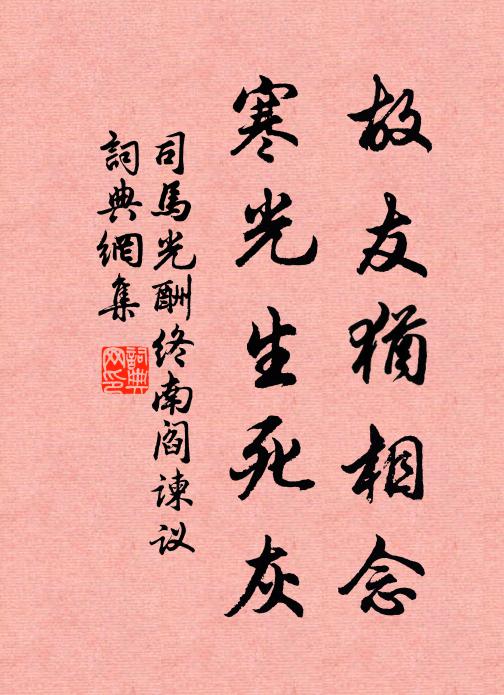 故友犹相念
寒光生死灰
司馬光酬终南阎諫议
詞典網集
詞典
网印